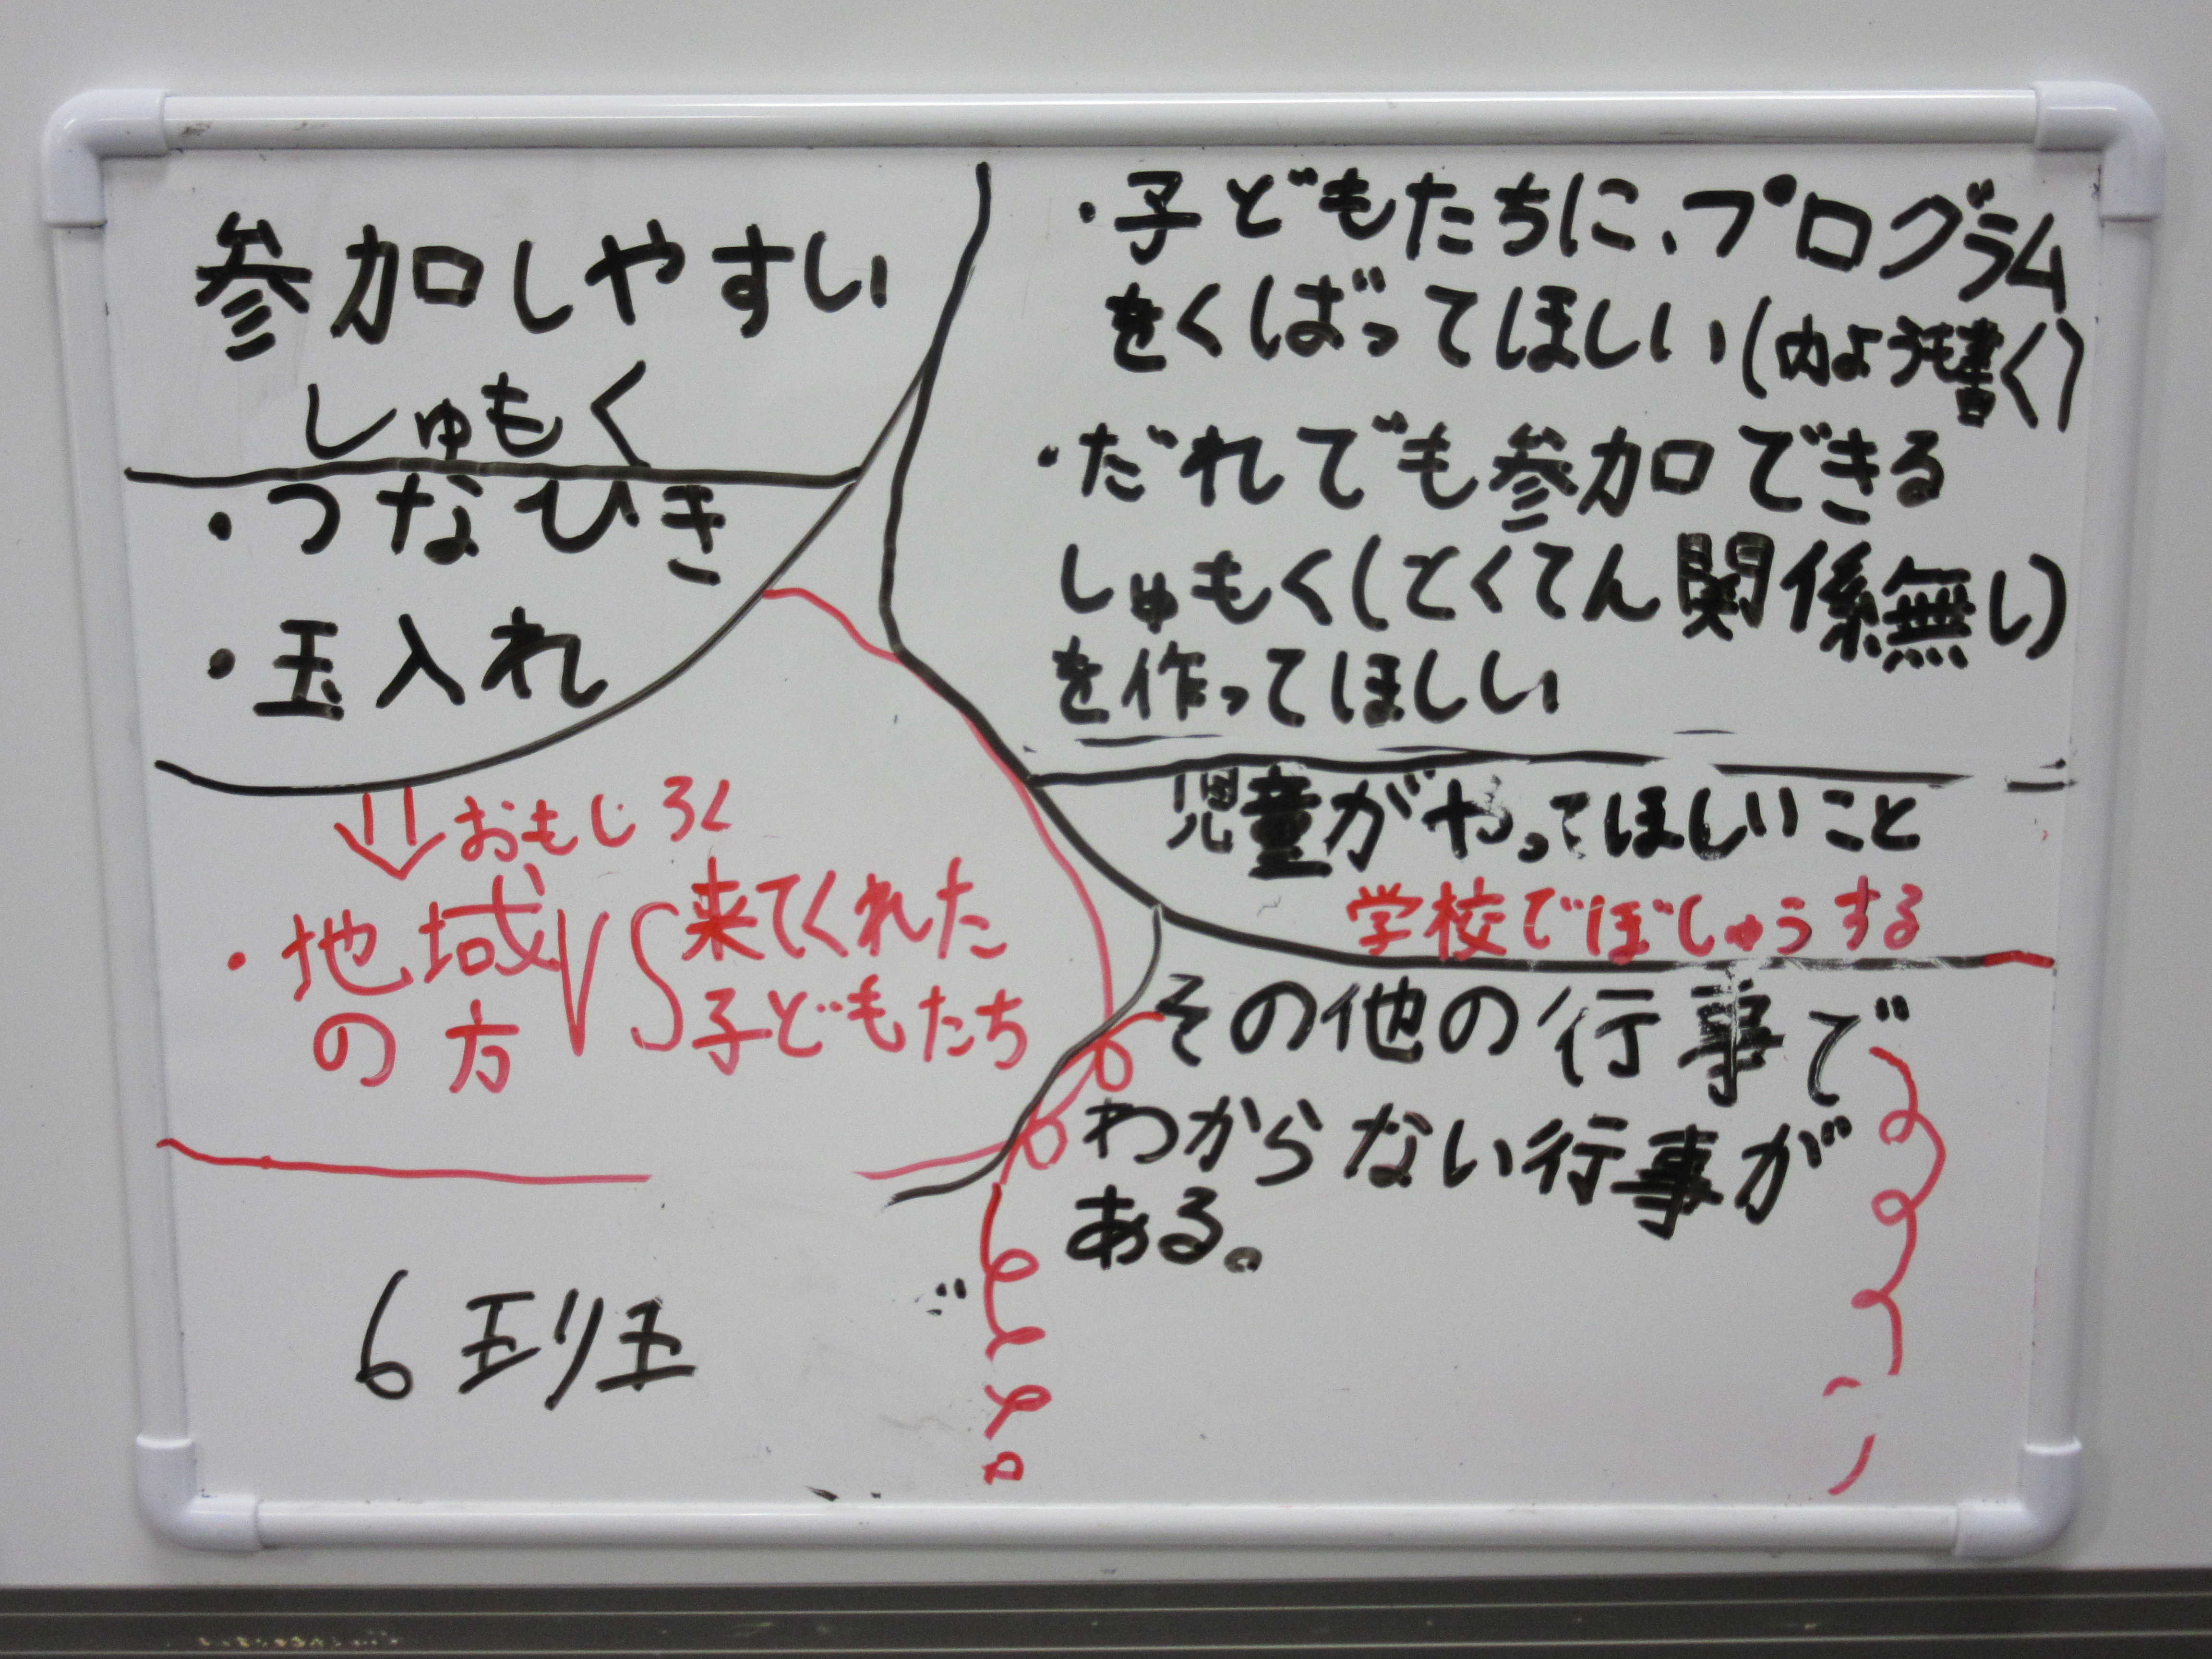 参加しやすい
しゅもく
・つなひき
・玉入れ
おもしろく
・地域の方VS来てくれた子どもたち
6班
・子どもたちに、プログラム
をくばってほしい(内ようも書く)
・だれでも参加できる
しゅもく(とくてん関係無し)
を作ってほしい
児童がやってほしいこと
学校でぼしゅうする
その他の行事で
わからない行事が
ある。